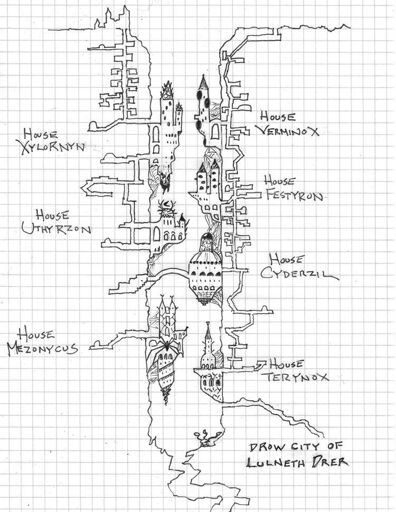 House
Xylornyn
House
Verminox
House
Festyron
House
Uthyrzon
House
Cyderzil
House
Mezonycus
House
Terynox
Drow City of
Lulneth Drer